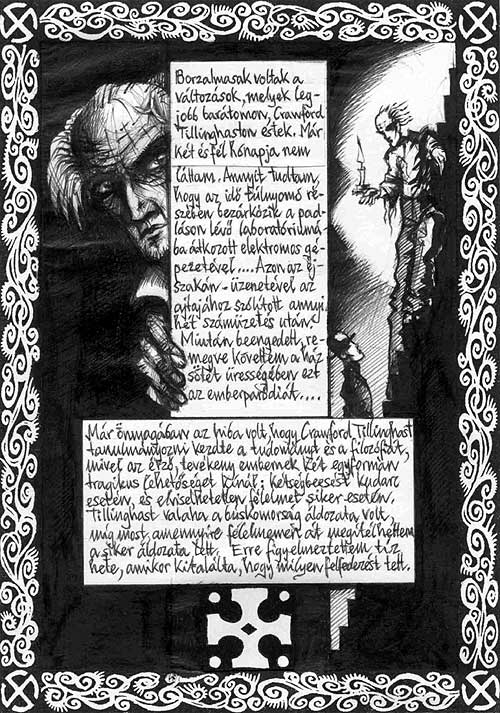 Borzalmasak voltak a
változások, melyek leg-
jobb barátomon, Crawford
Tillinghaston estek. Már
két és fél hónapja nem
láttam. Annyit tudtam,
hogy az idő túlnyomó ré-
szében bezárkózik a pad-
láson lévő laboratóriumá-
ba átkozott elektromos gé-
pezetével.... Azon az éj-
szakán - üzenetével az
ajtajához szólított annyi
hét száműzetés után.
Miután beengedett, re-
megve követtem a ház
sötét ürességében ezt
az emberparódiát....
Már önmagában az hiba volt, hogy Crawford Tillinghast
tanulmányozni kezdte a tudományt és a filozófiát,
mivel az érző, tevékeny embernek két egyformán
tragikus lehetőséget kínál: kétségbeesést kudarc
esetén, és elviselhetetlen félelmet siker esetén.
Tillinghast valaha a búskomorság áldozata volt,
míg most, amennyire félelmemen át megítélhettem
a siker áldozata lett. Erre figyelmeztettem tíz
hete, amikor kitalálta, hogy milyen felfedezést tett.